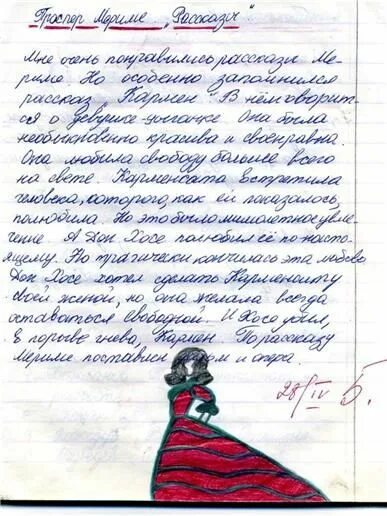 Проспер Мериме „Рассказы".
Мне очень понравились рассказы Ме-
риме. Но особенно запомнился
рассказ „Кармен". В нём говорит-
ся о девушке-цыганке. Она была
необыкновенно красива и своенравна.
Она любила свободу больше всего
на свете. Карменсита встретила
человека, которого, как ей показалось,
полюбила. Но это было мимолетное увле-
чение. А Дон Хосе полюбил её по-насто-
ящему. Но трагически кончилась эта любовь
Дон Хосе хотел сделать Карменситу
своей женой, но она желала всегда
оставаться свободной. И Хосе убил,
в порыве гнева, Кармен. По рассказу
Мериме поставлен фильм и опера.
28/IV 5.